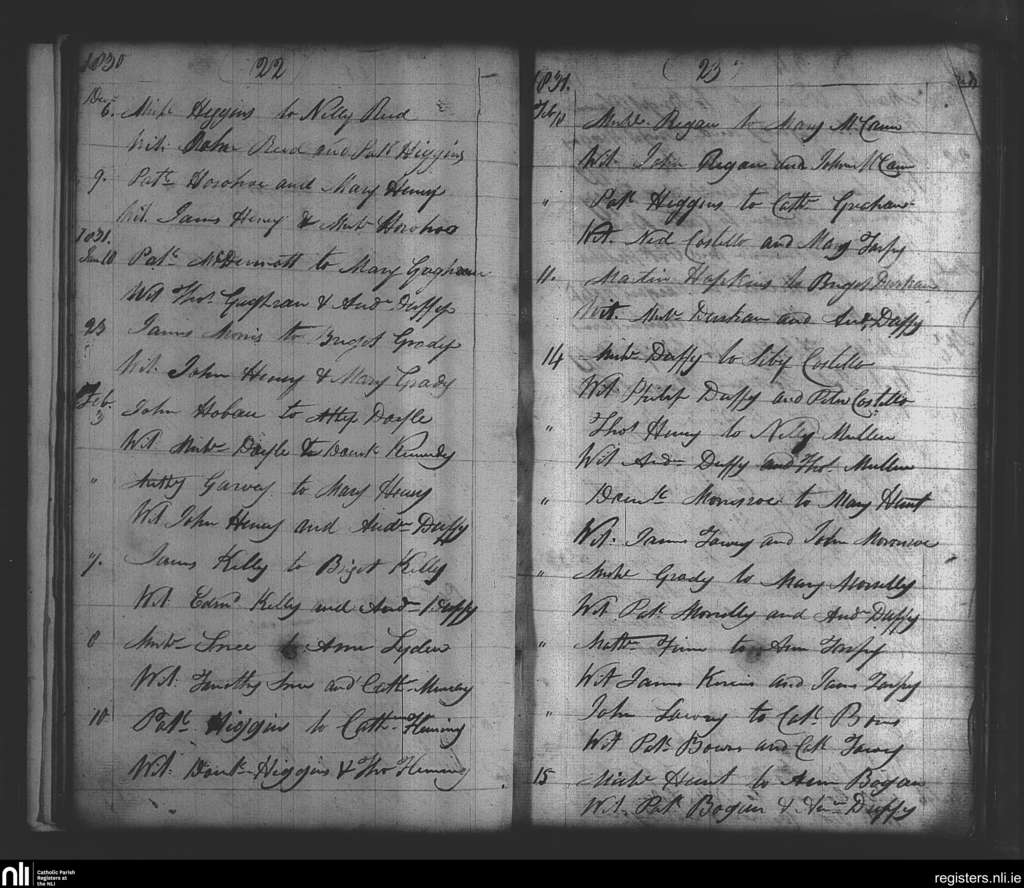 1830
22
Decr
6. Michl Higgins to Nelly Reid
Wit: John Reid and Patk Higgins
9. Patk Horohoe and Mary Henry
Wit. James Henry & Michl Horohoe
1831.
Jan 10 Patk McDermott to Mary Gughran
Wit Thos Gughran & Andw Duffy
23 James Morris to Briget Grady
Wit. John Henry & Mary Grady
Feb.
3 John Hoban to Doyle
Wit Michl Doyle & Domk Kennedy
" Garvey to Mary Henry
Wit John Henry and Andw Duffy
7. James Kelly to Biget Kelly
Wit. Edmd Kelly and Andw Duffy
8 Michl to Ann Lyden
Wit. Timothy and Cath Murray
10 Patk Higgins to Cathn Fleming
Wit. Domk Higgins & Thos Fleming
23
1831.
Feb 10 Michl. Regan to Mary McCann
Wit. John Regan and John McCann
" Patk Higgins to Cath
Wit. Ned Costello and Mary Tarpy
11. Martin Hopkins to Briget Durkan
Wit. Michl Durkan and Andw Duffy
14 Michl Duffy to Siby Costello
Wit Philip Duffy and Peter Costello
" Thos Henry to Nelly Mullen
Wit Andw Duffy and Thos. Mullen
" Domk Monroe to Mary Hunt
Wit. James and John
" Michl Grady to Mary Morrilly
Wit. Pat. Morrilly and Andw Duffy
" Matth Finn to Ann Tarpy
Wit James and James Tarpy
" John to Cath.
Wit Patk Bowns and Cath
15 Michl Hunt to Ann Bogan
Wit. Pat. Bogan & Duffy
nli
Catholic Parish
Registers at
the NLI
registers.nli.ie